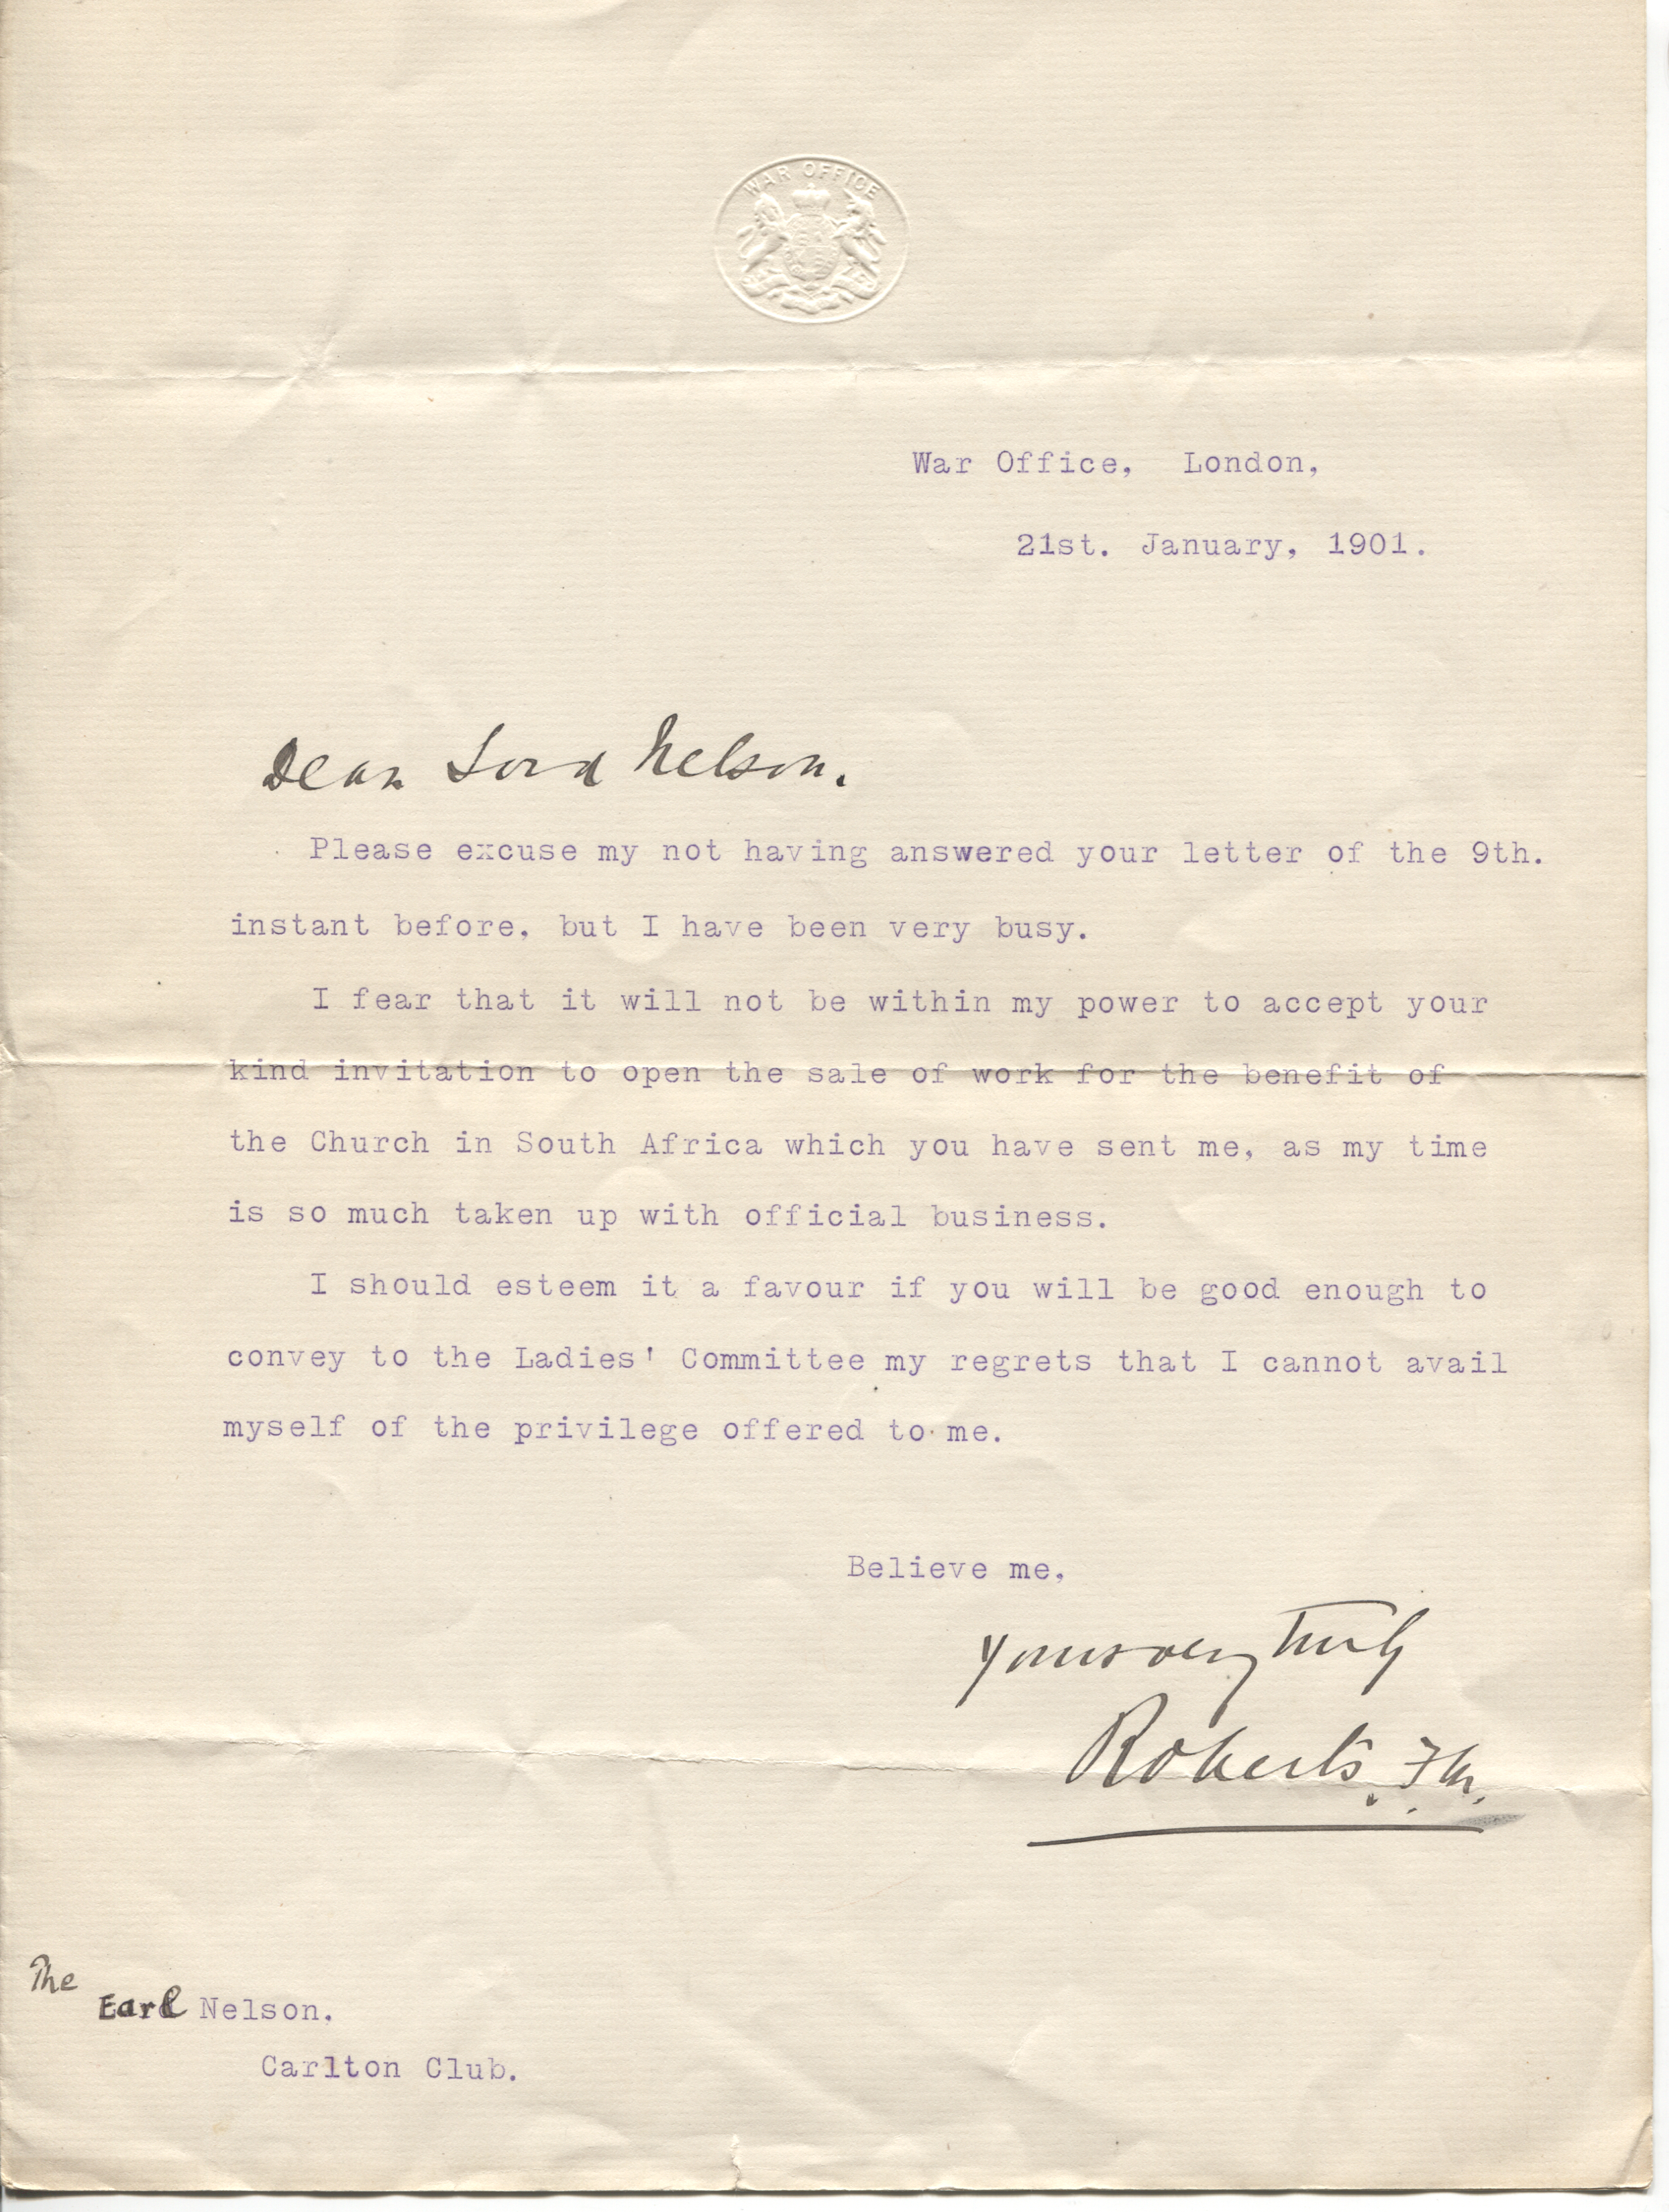 WAR OFFICE
War Office, London,
21st. January, 1901.
Dear Lord Nelson.
Please excuse my not having answered your letter of the 9th.
instant before, but I have been very busy.
I fear that it will not be within my power to accept your
kind invitation to open the sale of work for the benefit of
the Church in South Africa which you have sent me, as my time
is so much taken up with official business.
I should esteem it a favour if you will be good enough to
convey to the Ladies' Committee my regrets that I cannot avail
myself of the privilege offered to me.
Believe me,
Yours very truly
Roberts. F.M.
The
Earl Nelson.
Carlton Club.